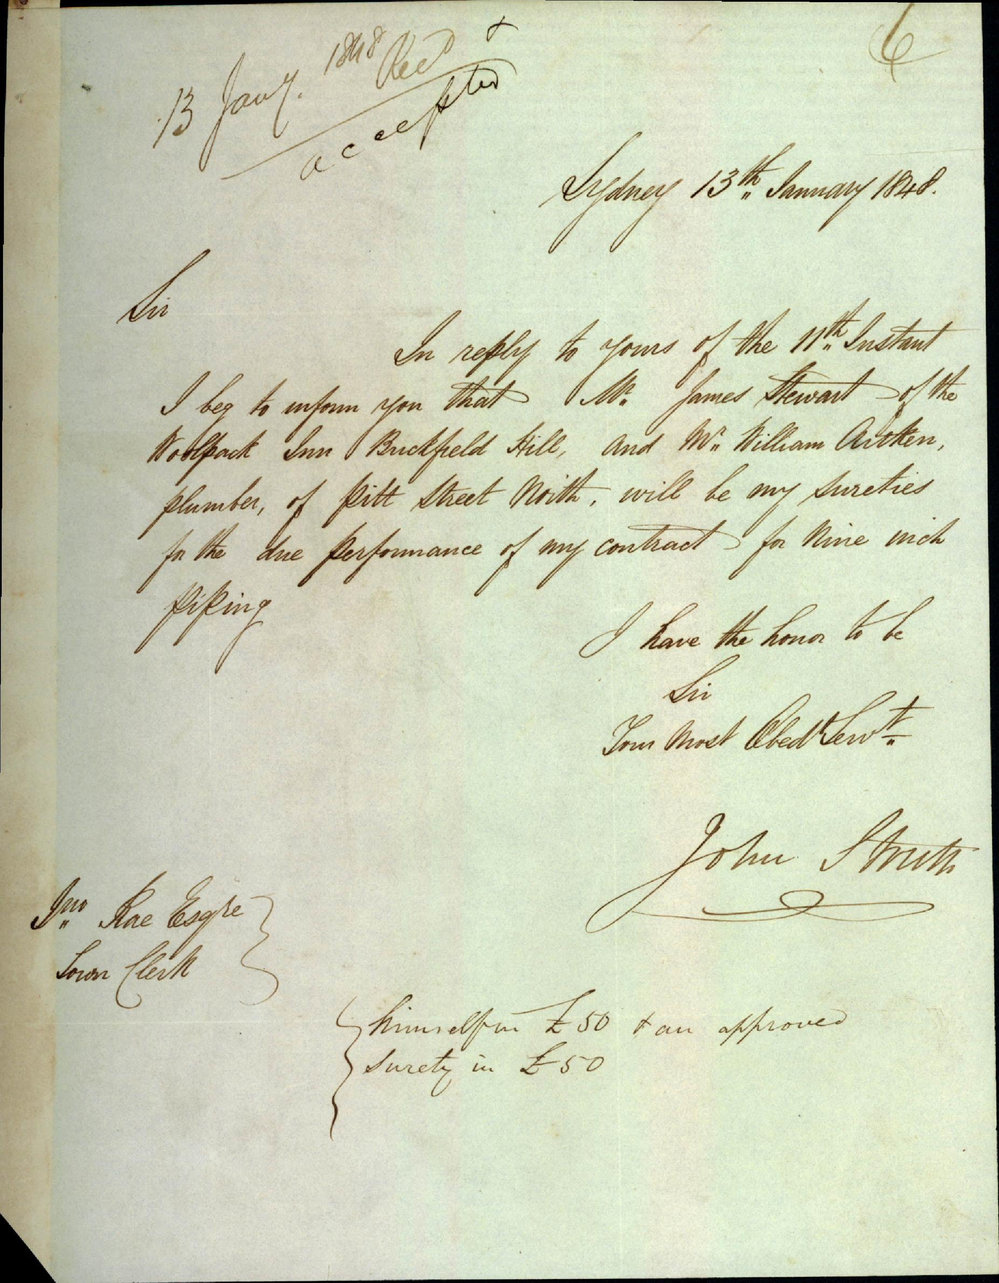 6
13 Jany. 1848 Recd &
accepted
Sydney 13th January 1848.
Sir
In reply to yours of the 11th Instant
I beg to inform you that Mr. James Stewart of the
Woolpack Inn Brickfield Hill, and Mr. William Aitken,
plumber, of Pitt Street North, will be my sureties
for the due performance of my contract for Nine inch
piping
I have the honor to be
Sir
Your Most Obedt Servt
John Struth
Jno Rae Esqre
Town Clerk
himself in £50 & an approved
surety in £50